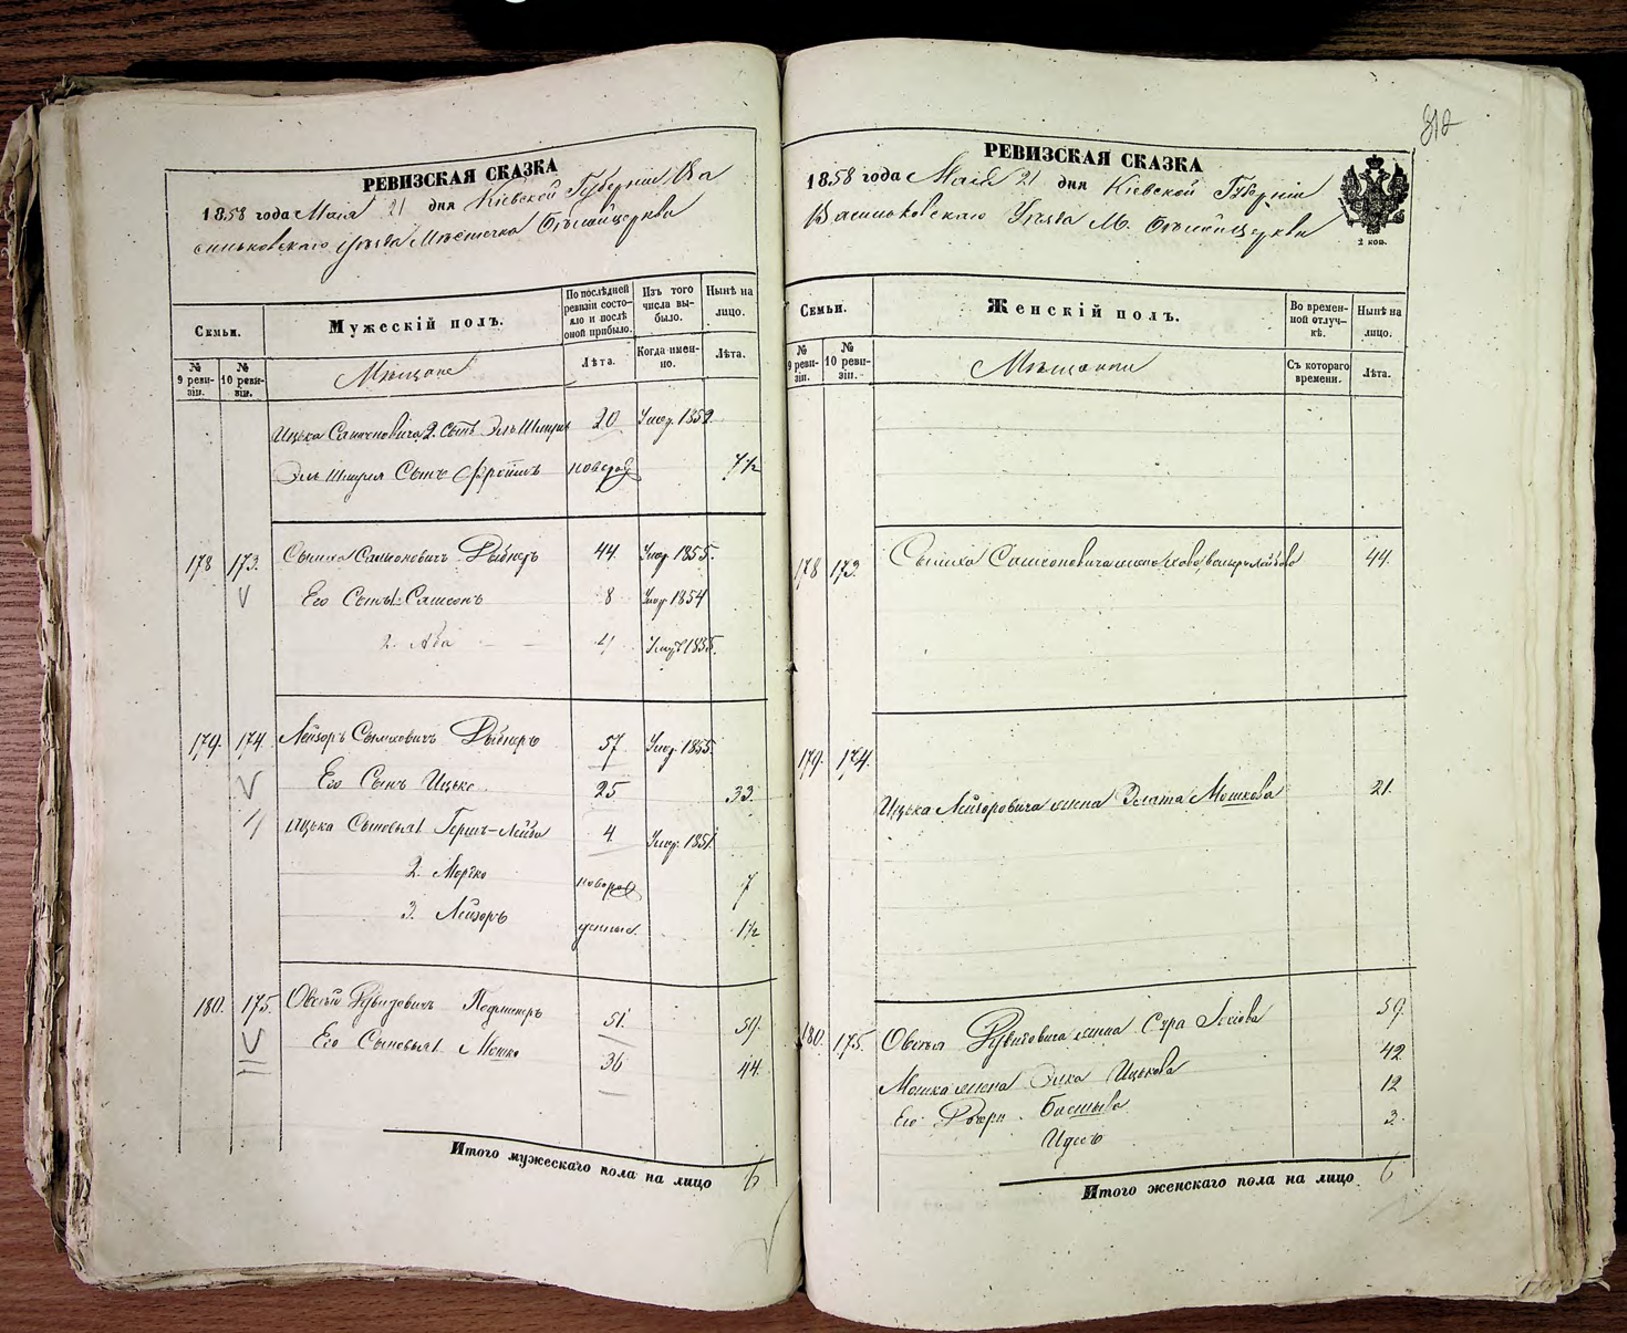 812
РЕВИЗСКАЯ СКАЗКА
1858 года Маія 21 дня Кіевской Губерніи Ва
сильковскаго уѣзда Мѣстечка Бѣлойцеркви
Семьи.
Мужескій полъ.
По послѣдней ревизіи состояло и послѣ оной прибыло.
Изъ того числа выбыло.
Нынѣ на лицо.
№ 9 ревизіи.
№ 10 ревизіи.
Мѣщане
Лѣта.
Когда именно.
Лѣта.
Ицька Самсоновича 2. Сынъ Эль Шмуль 20 Умер. 1852
Эль Шмуля Сынъ Фроимъ новорож 7½
178 173. Сымха Самсоновичъ 44. Умер. 1855.
Его Сынъ 1. Самсонъ 8 Умер. 1854
2. Аба 4
179. 174. Лейзоръ Сымховичъ 57 Умер. 1855
Его Сынъ Ицько 25 33.
Ицька Сыновья 1 Гершъ-Лейба 4. Умер. 1851.
2. Мордко новорож 7
3. Лейзоръ денные. 1½
180. 175. Овсѣй 51. 59.
Его Сыновья 1. Мошко 36 44.
Итого мужескаго пола на лицо 6
РЕВИЗСКАЯ СКАЗКА
1858 года Маія 21 дня Кіевской Губерніи
Васильковскаго Уѣзда М. Бѣлойцеркви
2 коп.
Семьи.
Женскій полъ.
Во временной отлучкѣ.
Нынѣ на лицо.
№ 9 ревизіи.
№ 10 ревизіи.
Мѣщанки
Съ котораго времени.
Лѣта.
178 173. Сымха Самсоновича жена 44.
179. 174.
Ицька Лейзоровича жена Злата Мошкова 21.
180. 175. Овсѣя жена Сура 59.
Мошка жена Элка Ицькова 42
Его Дочери 12
3.
Итого женскаго пола на лицо 6